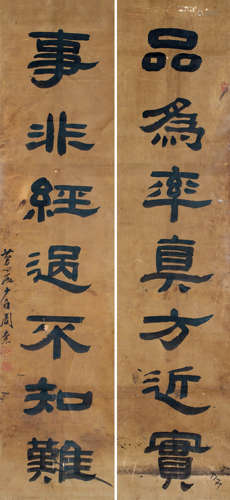 品為率真方近實
事非經過不知難